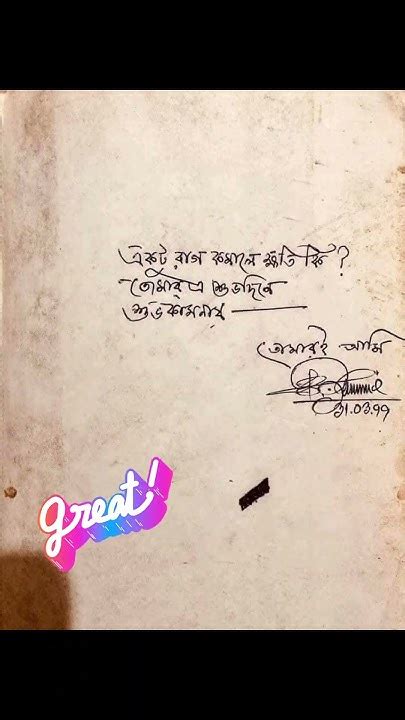 একটু রাগ কমালে ক্ষতি কি?
তোমার এ শুভদিনে
শুভকামনায় ———
তোমারই আমি
31.03.99
great!